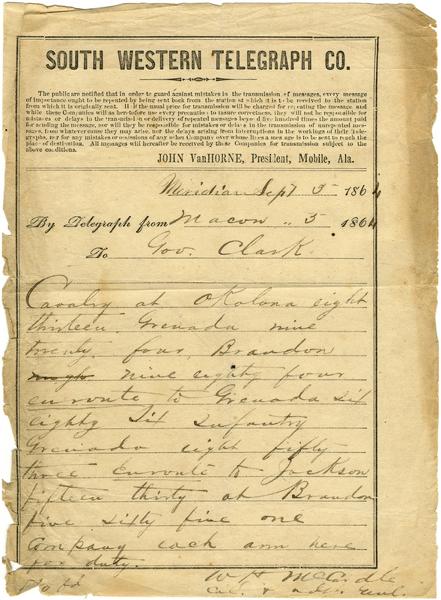 SOUTH WESTERN TELEGRAPH CO.
The public are notified that in order to guard against mistakes in the transmission of messages, every message
of importance ought to be repeated by being sent back from the station at which it is to be received to the station
from which it is originally sent. If the usual price for transmission will be charged for repeating the message, and
while these Companies will as heretofore use every precaution to insure correctness, they will not be responsible for
mistakes or delays in the transmission or delivery of repeated messages beyond five hundred times the amount paid
for sending the message, nor will they be responsible for mistakes or delays in the transmission of unrepeated mes-
sages, from whatever cause they may arise, nor the delays arising from interruptions in the workings of their Tele-
graphs, nor for any mistakes or omissions of any other Company over whose lines a message is to be sent to reach the
place of destination. All messages will hereafter be received by these Companies for transmission subject to the
above conditions.
JOHN VanHORNE, President, Mobile, Ala.
Meridian Sept 5 1864
By Telegraph from Macon .. 5 1864
To Gov. Clark.
Cavalry at Okolona eight
thirteen. Grenada nine
twenty four, Brandon
nine eighty four
enroute to Grenada six
eighty six Infantry
Grenada eight fifty
three Enroute to Jackson
fifteen thirty at Brandon
five sixty five one
Company each arm here
for duty.
W H McCardle